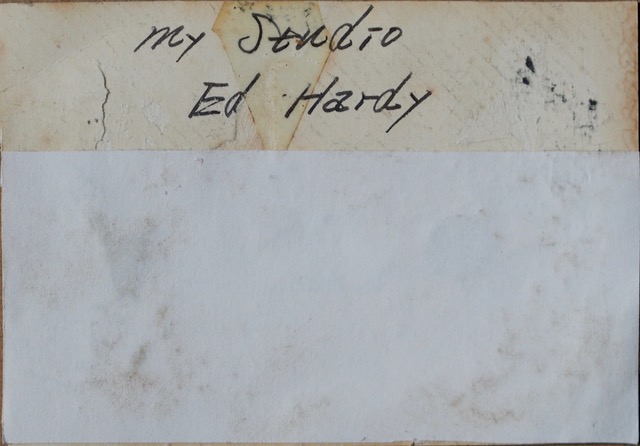 my Studio
Ed Hardy